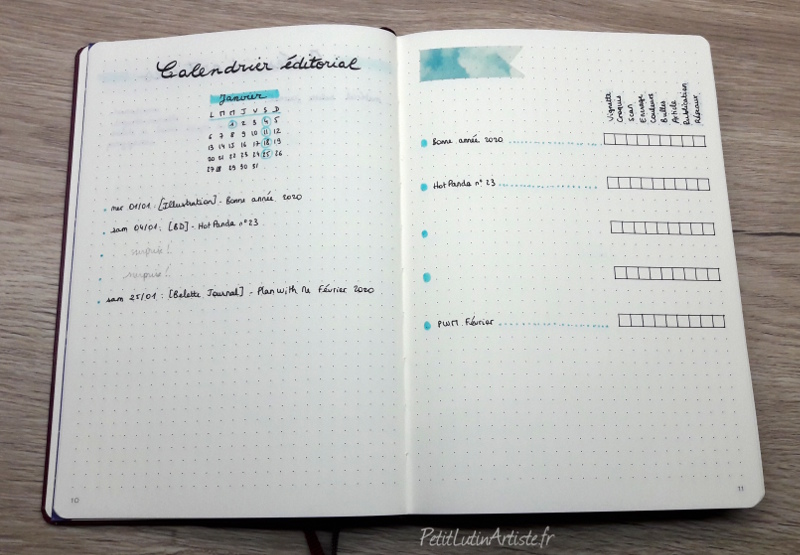 Calendrier éditorial
Janvier
L M M J V S D
1 2 3 4 5
6 7 8 9 10 11 12
13 14 15 16 17 18 19
20 21 22 23 24 25 26
27 28 29 30 31
mer 01/01 : [Illustration] - Bonne année 2020
sam 04/01 : [BD] - Hot Panda n°23
surprise !
surprise !
sam 25/01 : [Belette Journal] - Plan With Me Février 2020
10
Vignette
Croquis
Scan
Encrage
Couleurs
Bulles
Article
Publication
Réseaux
Bonne année 2020
Hot Panda n°23
PWM Février
11
PetitLutinArtiste.fr